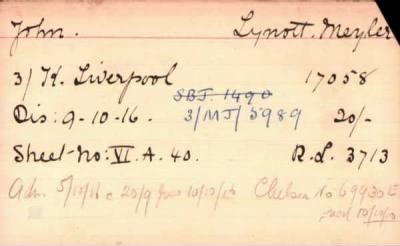 John. Lynott. Meyler
3/ K. Liverpool 17058
SBJ. 1490
Dis: 9-10-16. 3/MJ/5989 20/-
Sheet No: VI. A. 40. R.L. 3713
Adm 5/10/16 @ 20/9 from 10/10/16 Chelsea No 69930 E